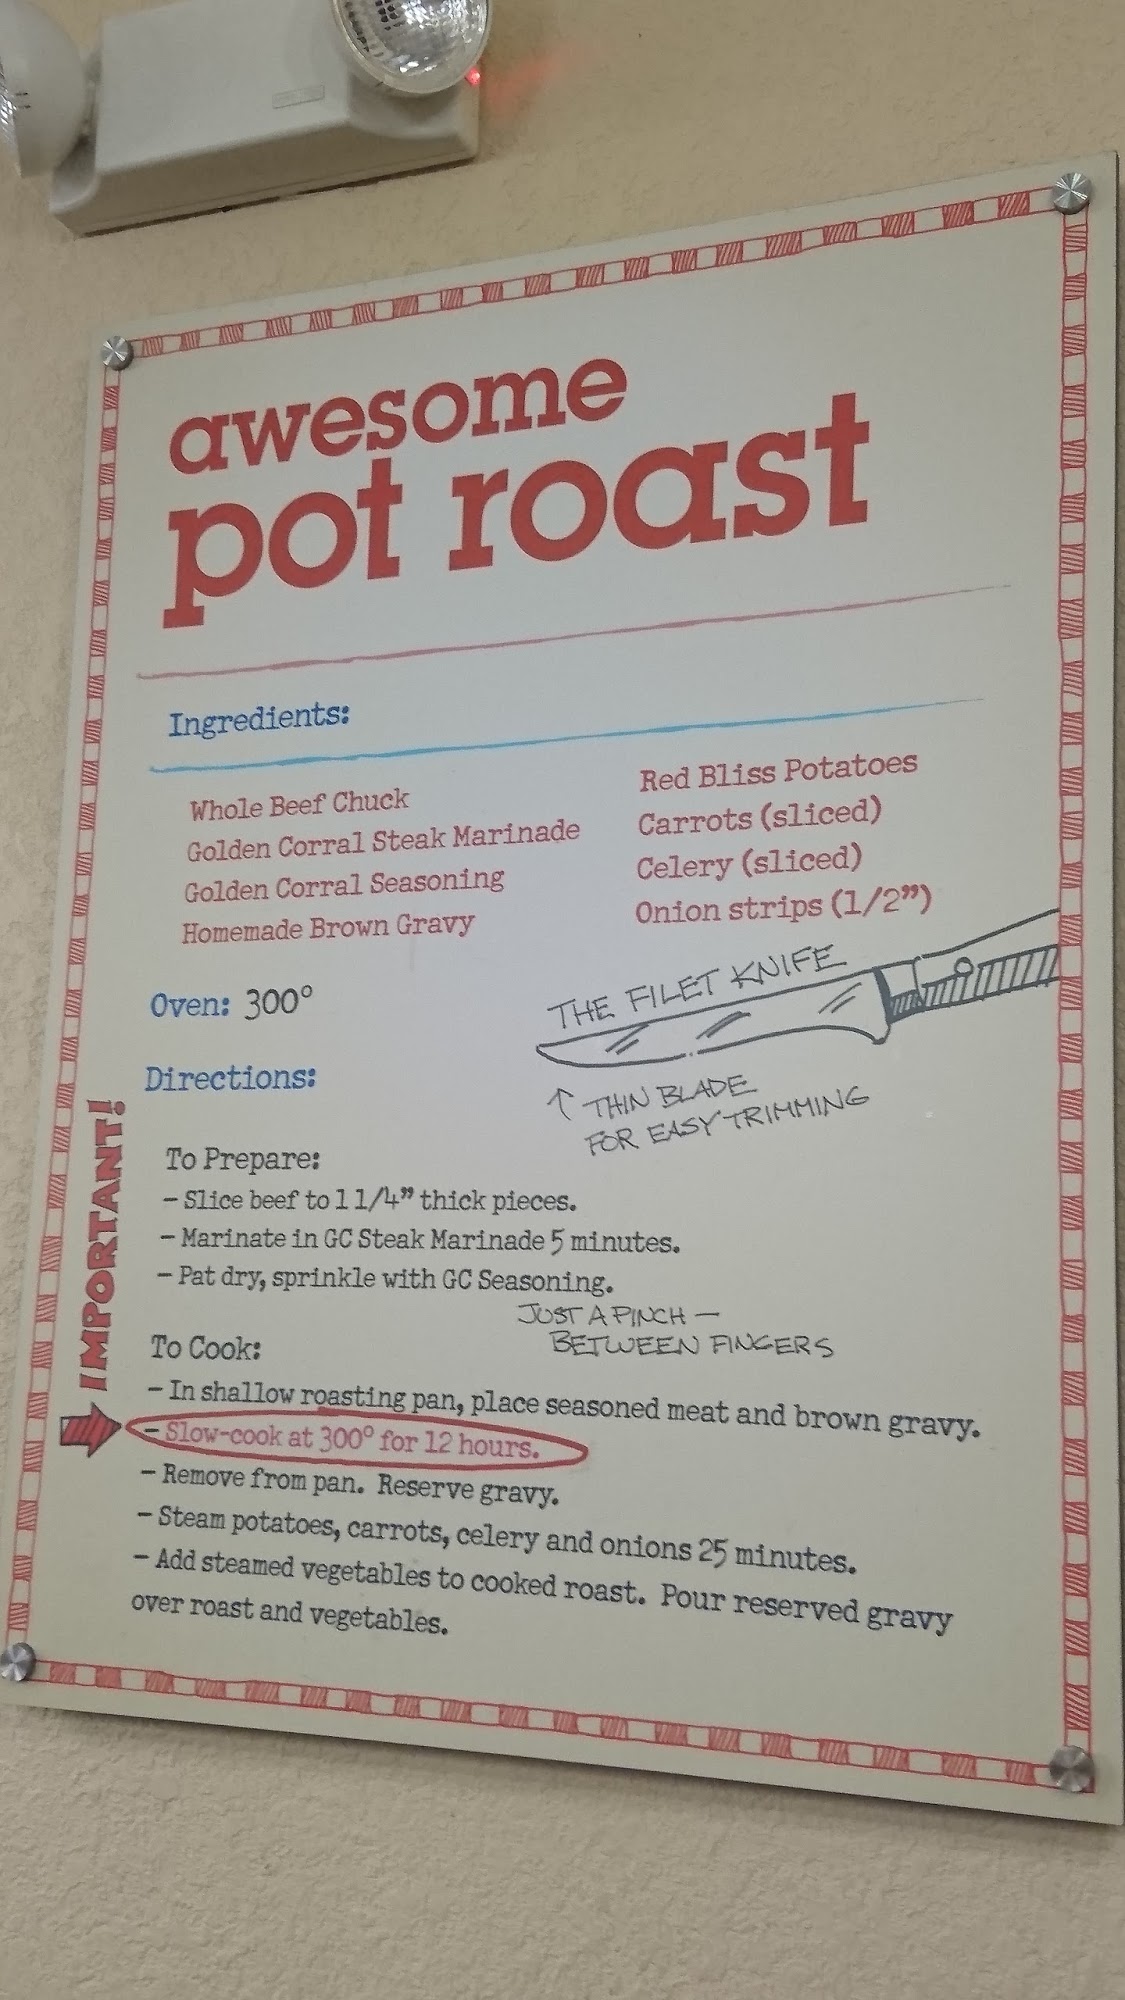 awesome
pot roast
Ingredients:
Whole Beef Chuck
Golden Corral Steak Marinade
Golden Corral Seasoning
Homemade Brown Gravy
Red Bliss Potatoes
Carrots (sliced)
Celery (sliced)
Onion strips (1/2”)
Oven: 300°
THE FILET KNIFE
↑ THIN BLADE
FOR EASY TRIMMING
Directions:
To Prepare:
– Slice beef to 1 1/4” thick pieces.
– Marinate in GC Steak Marinade 5 minutes.
– Pat dry, sprinkle with GC Seasoning.
JUST A PINCH —
BETWEEN FINGERS
IMPORTANT!
To Cook:
– In shallow roasting pan, place seasoned meat and brown gravy.
– Slow-cook at 300° for 12 hours.
– Remove from pan. Reserve gravy.
– Steam potatoes, carrots, celery and onions 25 minutes.
– Add steamed vegetables to cooked roast. Pour reserved gravy
over roast and vegetables.